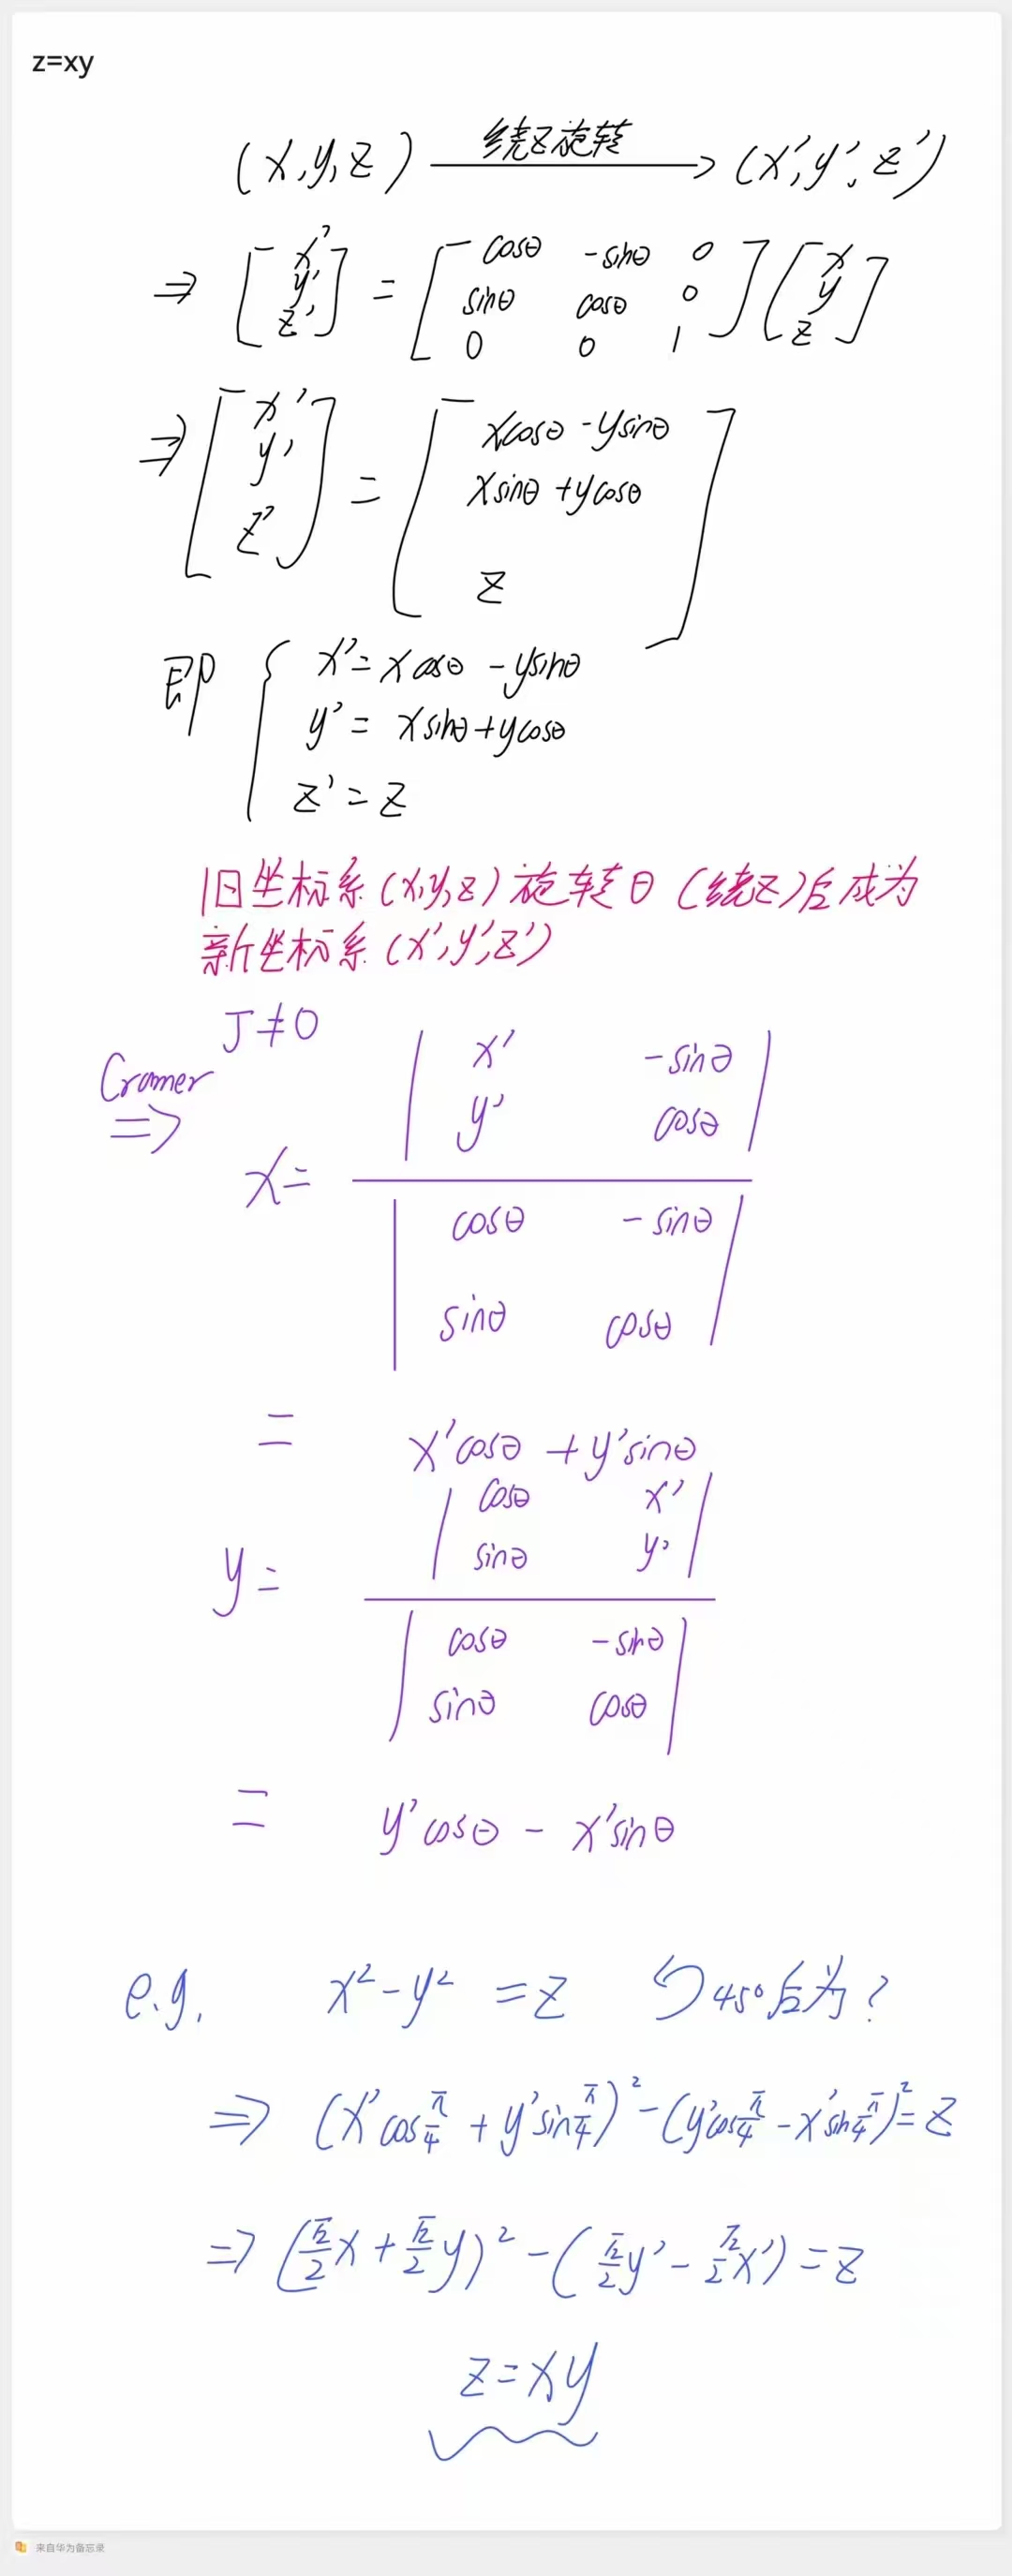 z=xy
(x,y,z) 绕z旋转 → (x',y',z')
⇒ [x' y' z'] = [cosθ -sinθ 0; sinθ cosθ 0; 0 0 1] [x y z]
⇒ [x' y' z'] = [xcosθ -ysinθ; xsinθ +ycosθ; z]
即 { x'= xcosθ -ysinθ
y' = xsinθ+ycosθ
z'=z
旧坐标系(x,y,z)旋转θ(绕z)后成为
新坐标系(x',y',z')
J≠0
Cramer ⇒
x= |x' -sinθ; y' cosθ| / |cosθ -sinθ; sinθ cosθ|
= x'cosθ +y'sinθ
y= |cosθ x'; sinθ y'| / |cosθ -sinθ; sinθ cosθ|
= y'cosθ - x'sinθ
e.g. x²-y² =z ↺45°后为?
⇒ (x'cosπ/4 + y'sinπ/4)²-(y'cosπ/4 -x'sinπ/4)²=z
⇒ (√2/2x+√2/2y)²-(√2/2y'-√2/2x')=z
z=xy
来自华为备忘录